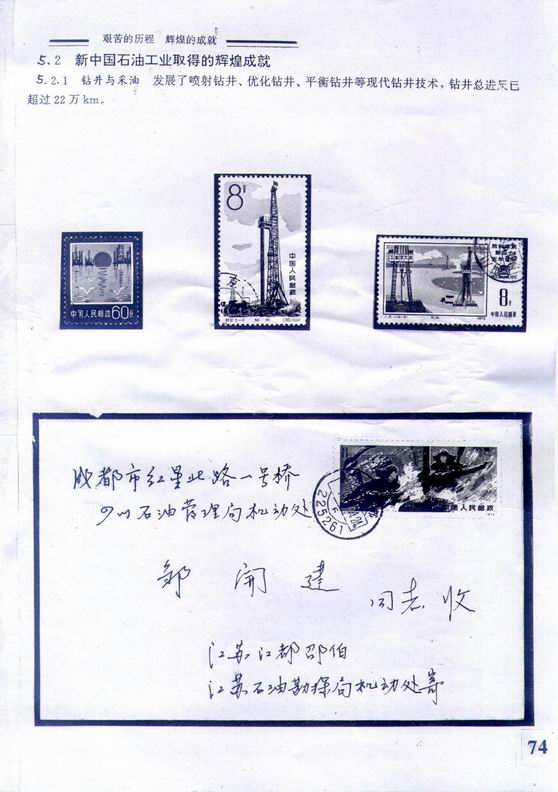 艰苦的历程 辉煌的成就
5.2 新中国石油工业取得的辉煌成就
5.2.1 钻井与采油 发展了喷射钻井、优化钻井、平衡钻井等现代钻井技术，钻井总进尺已
超过22万km。
中国人民邮政 60分
8分
中国人民邮政
8分
中国人民邮政
中国人民邮政
225261
成都市红星北路一号桥
四川石油管理局机动处
邹开建
同志 收
江苏江都邵伯
江苏石油勘探局机动处寄
74